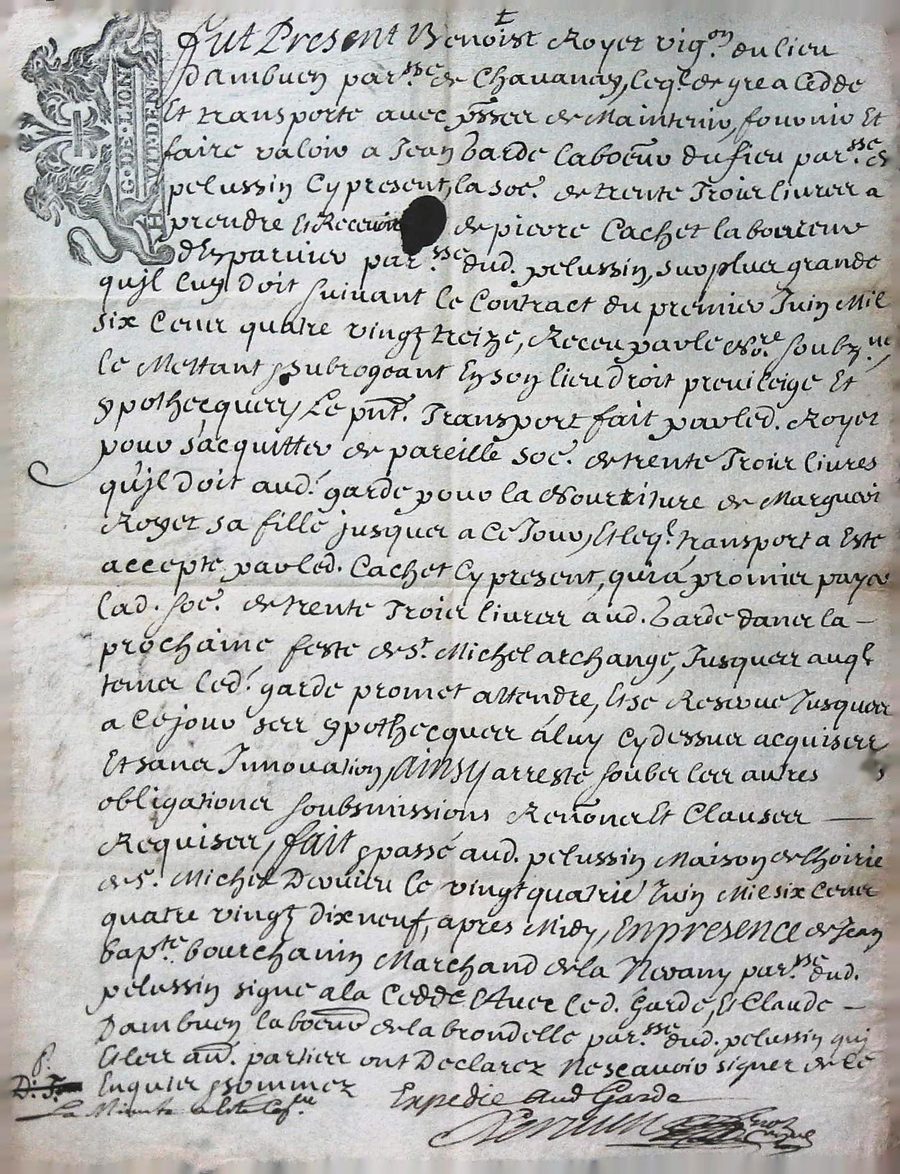 G. DE. LION
fut Present Benoist Royet vig.on du lieu
Dambuen par.sse de Chavanay, leq.l de gre a Cedde
Et transporte avec pñsse de Maintenir, fournir Et
faire valoir a Jean Garde laboeur du fieu par.sse de
pelussin Cy present, la soe. de trente Trois livres a
prendre Et Recevoir de pierre Cachet laboureur
d'Esparvier par.sse dud. pelussin, sur plus grande
quil luy doit suivant le Contract du premier Juin Mil
six Cens quatre vingt treize, Receu par le No.re soubz.né
le Mettant & subrogeant En son lieu droit privileige Et
ypothecques, Le pnt. Transport fait par led. Royet
pour s'acquitter de pareille soe. de trente Trois livres
qu'il Doit aud. garde pour la Nourriture de
Royet sa fille jusques a Ce Jour, Et leq.l transport a Este
accepte par led. Cachet Cy present, qui a promis payer
lad. soe. de trente Trois livres aud. Garde dans la -
prochaine feste de S.t Michel archange, Jusques auq.l
temps led. garde promet attendre, Et se Reserve Jusques
a Ce jour ses ypothecques a luy Cy dessus acquises
Et sans Innovation, ainsy arresté soubs les autres
obligations soubsmissions Renõns Et Clauses
Requises, fait & passé aud. pelussin Maison de
de S. Michel Dervieu le vingt quatrie Juin Mil six Cens
quatre vingt dix neuf, apres Midy, En presence de Jean
bap.te bourchanin Marchand de la par.sse dud.
pelussin signe a la Cedde Avec led. Garde, Et Claude -
Dambuen laboeur de la brondelle par.sse dud. pelussin qui
Et les aud. parties ont Declarez Ne scavoir signer de Ce
Enquis & sommez
Expedie aud Garde
la Minute